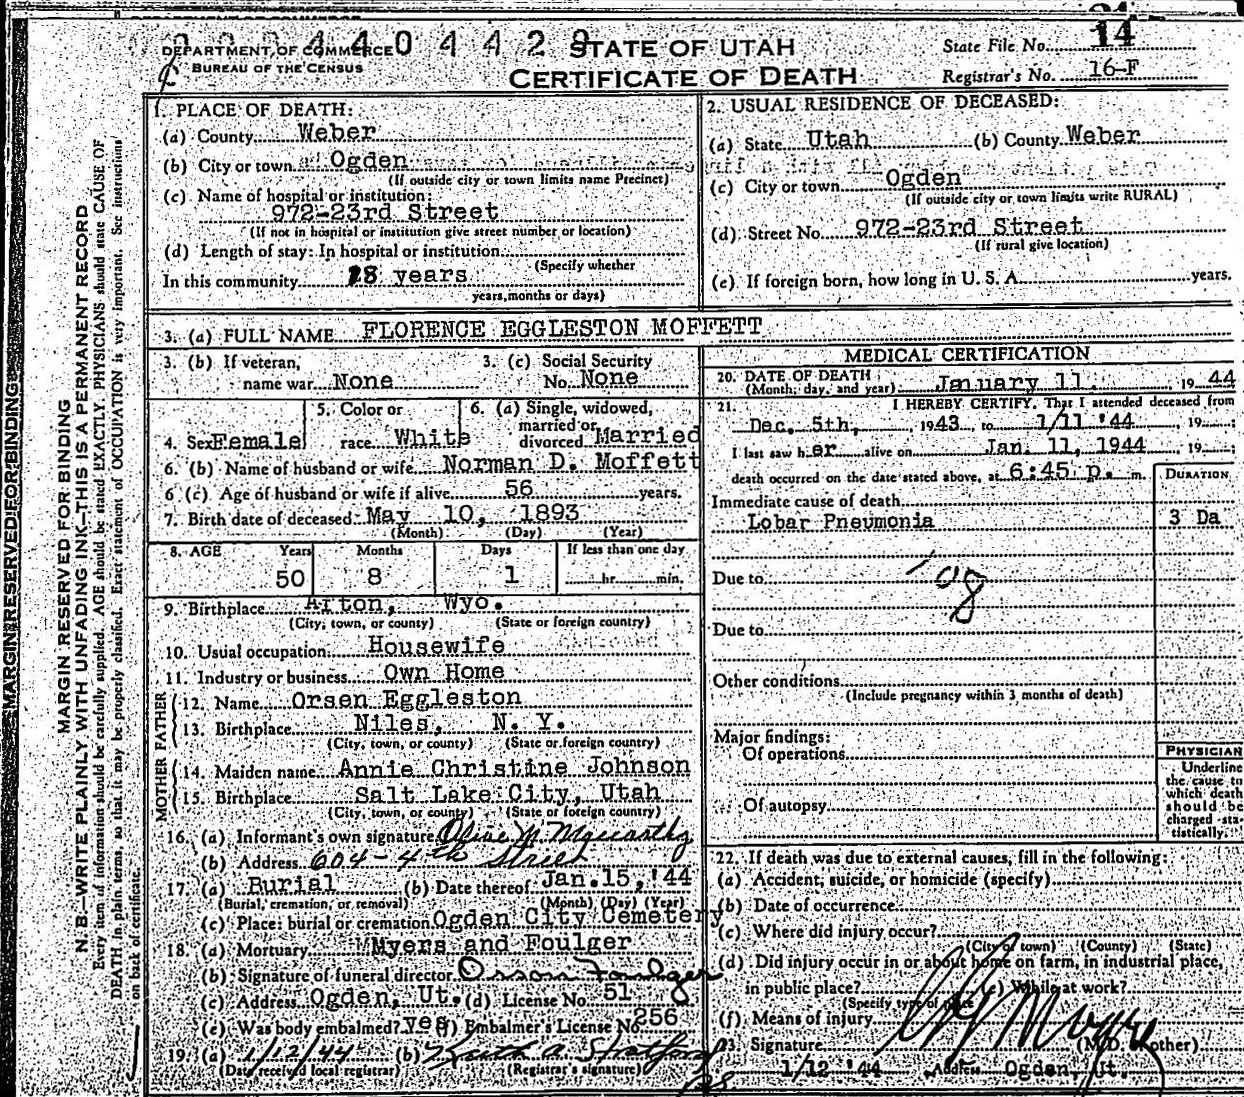 DEPARTMENT OF COMMERCE
BUREAU OF THE CENSUS
404429
STATE OF UTAH
CERTIFICATE OF DEATH
State File No. 14
Registrar's No. 16-F
MARGIN RESERVED FOR BINDING
MARGIN RESERVED FOR BINDING
N. B.—WRITE PLAINLY WITH UNFADING INK—THIS IS A PERMANENT RECORD
Every item of information should be carefully supplied. AGE should be stated EXACTLY. PHYSICIANS should state CAUSE OF
DEATH in plain terms, so that it may be properly classified. Exact statement of OCCUPATION is very important. See instructions
on back of certificate.
1. PLACE OF DEATH:
(a) County Weber
(b) City or town Ogden
(If outside city or town limits name Precinct)
(c) Name of hospital or institution:
972-23rd Street
(If not in hospital or institution give street number or location)
(d) Length of stay: In hospital or institution
(Specify whether
In this community 28 years
years, months or days)
2. USUAL RESIDENCE OF DECEASED:
(a) State Utah (b) County Weber
(c) City or town Ogden
(If outside city or town limits write RURAL)
(d) Street No. 972-23rd Street
(If rural give location)
(e) If foreign born, how long in U. S. A. years.
3. (a) FULL NAME FLORENCE EGGLESTON MOFFETT
3. (b) If veteran,
name war None
3. (c) Social Security
No. None
4. Sex Female
5. Color or
race White
6. (a) Single, widowed,
married or
divorced Married
6. (b) Name of husband or wife Norman D. Moffett
6 (c) Age of husband or wife if alive 56 years.
7. Birth date of deceased May 10, 1893
(Month) (Day) (Year)
8. AGE Years Months Days If less than one day
50 8 1 hr. min.
9. Birthplace Afton, Wyo.
(City, town, or county) (State or foreign country)
10. Usual occupation Housewife
11. Industry or business Own Home
FATHER
12. Name Orsen Eggleston
13. Birthplace Niles, N. Y.
(City, town, or county) (State or foreign country)
MOTHER
14. Maiden name Annie Christine Johnson
15. Birthplace Salt Lake City, Utah
(City, town, or county) (State or foreign country)
16. (a) Informant's own signature Olive M
(b) Address 604-4th Street
17. (a) Burial (b) Date thereof Jan.15,'44
(Burial, cremation, or removal) (Month) (Day) (Year)
(c) Place: burial or cremation Ogden City Cemetery
18. (a) Mortuary Myers and Foulger
(b) Signature of funeral director Orson Foulger
(c) Address Ogden, Ut. (d) License No. 51
(e) Was body embalmed? Yes (f) Embalmer's License No. 256
19. (a) 1/12/44 (b) Ruth A. Statford
(Date received local registrar) (Registrar's signature)
MEDICAL CERTIFICATION
20. DATE OF DEATH
(Month, day, and year) January 11. 1944
21. I HEREBY CERTIFY, That I attended deceased from
Dec. 5th, 1943, to 1/11 '44, 19
I last saw her alive on Jan. 11, 1944, 19
death occurred on the date stated above, at 6:45 p. m.
DURATION
Immediate cause of death
Lobar Pneumonia 3 Da
Due to
108
Due to
Other conditions
(Include pregnancy within 3 months of death)
Major findings:
Of operations
Of autopsy
PHYSICIAN
Underline
the cause to
which death
should be
charged sta-
tistically.
22. If death was due to external causes, fill in the following:
(a) Accident, suicide, or homicide (specify)
(b) Date of occurrence
(c) Where did injury occur?
(City or town) (County) (State)
(d) Did injury occur in or about home on farm, in industrial place,
in public place? (e) While at work?
(Specify type of place
(f) Means of injury
23. Signature (M.D. other)
1/12 '44 Address Ogden, Ut.